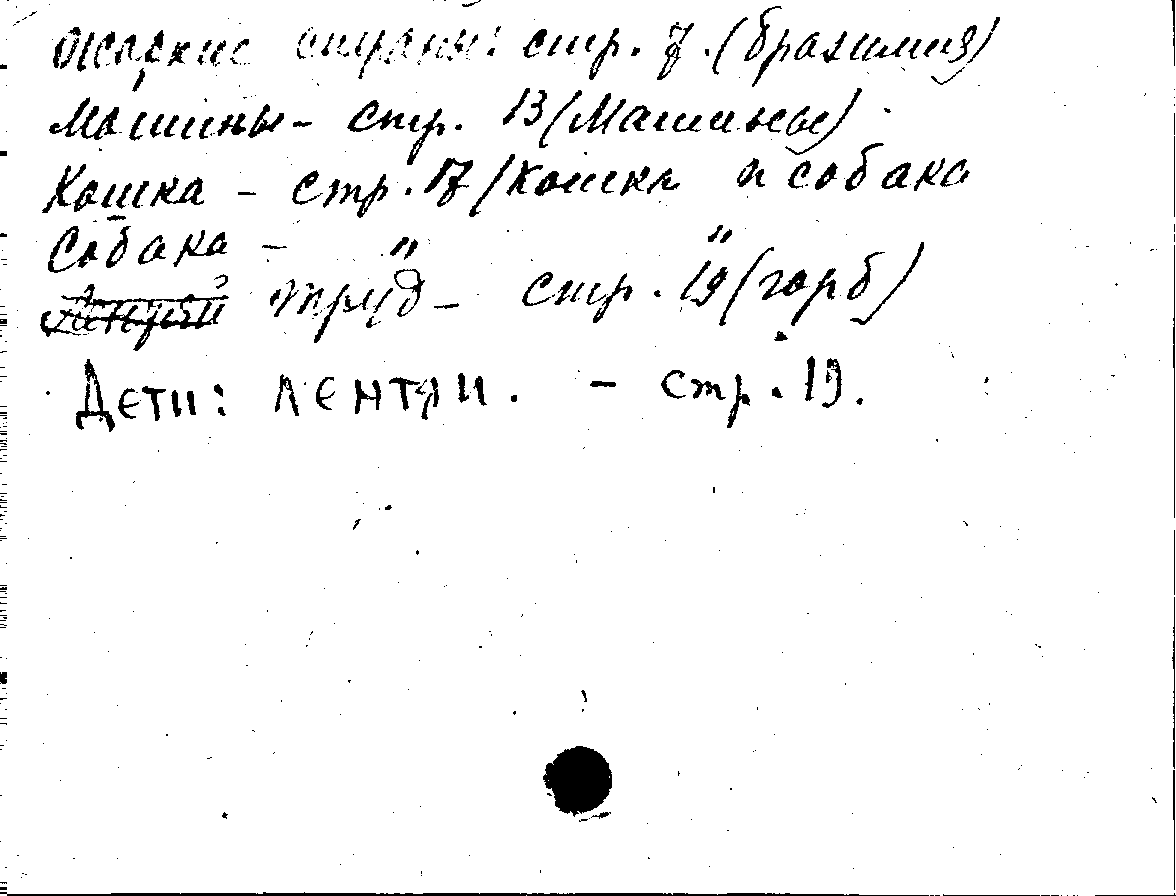 Жаркие страны: стр. 7. (Бразилия)
Машины - стр. 13 (Машины)
Кошка - стр. 17 (Кошка и собака
Собака - " "
Труд - стр. 19 (горб)
Дети: лентяи. - стр. 19.